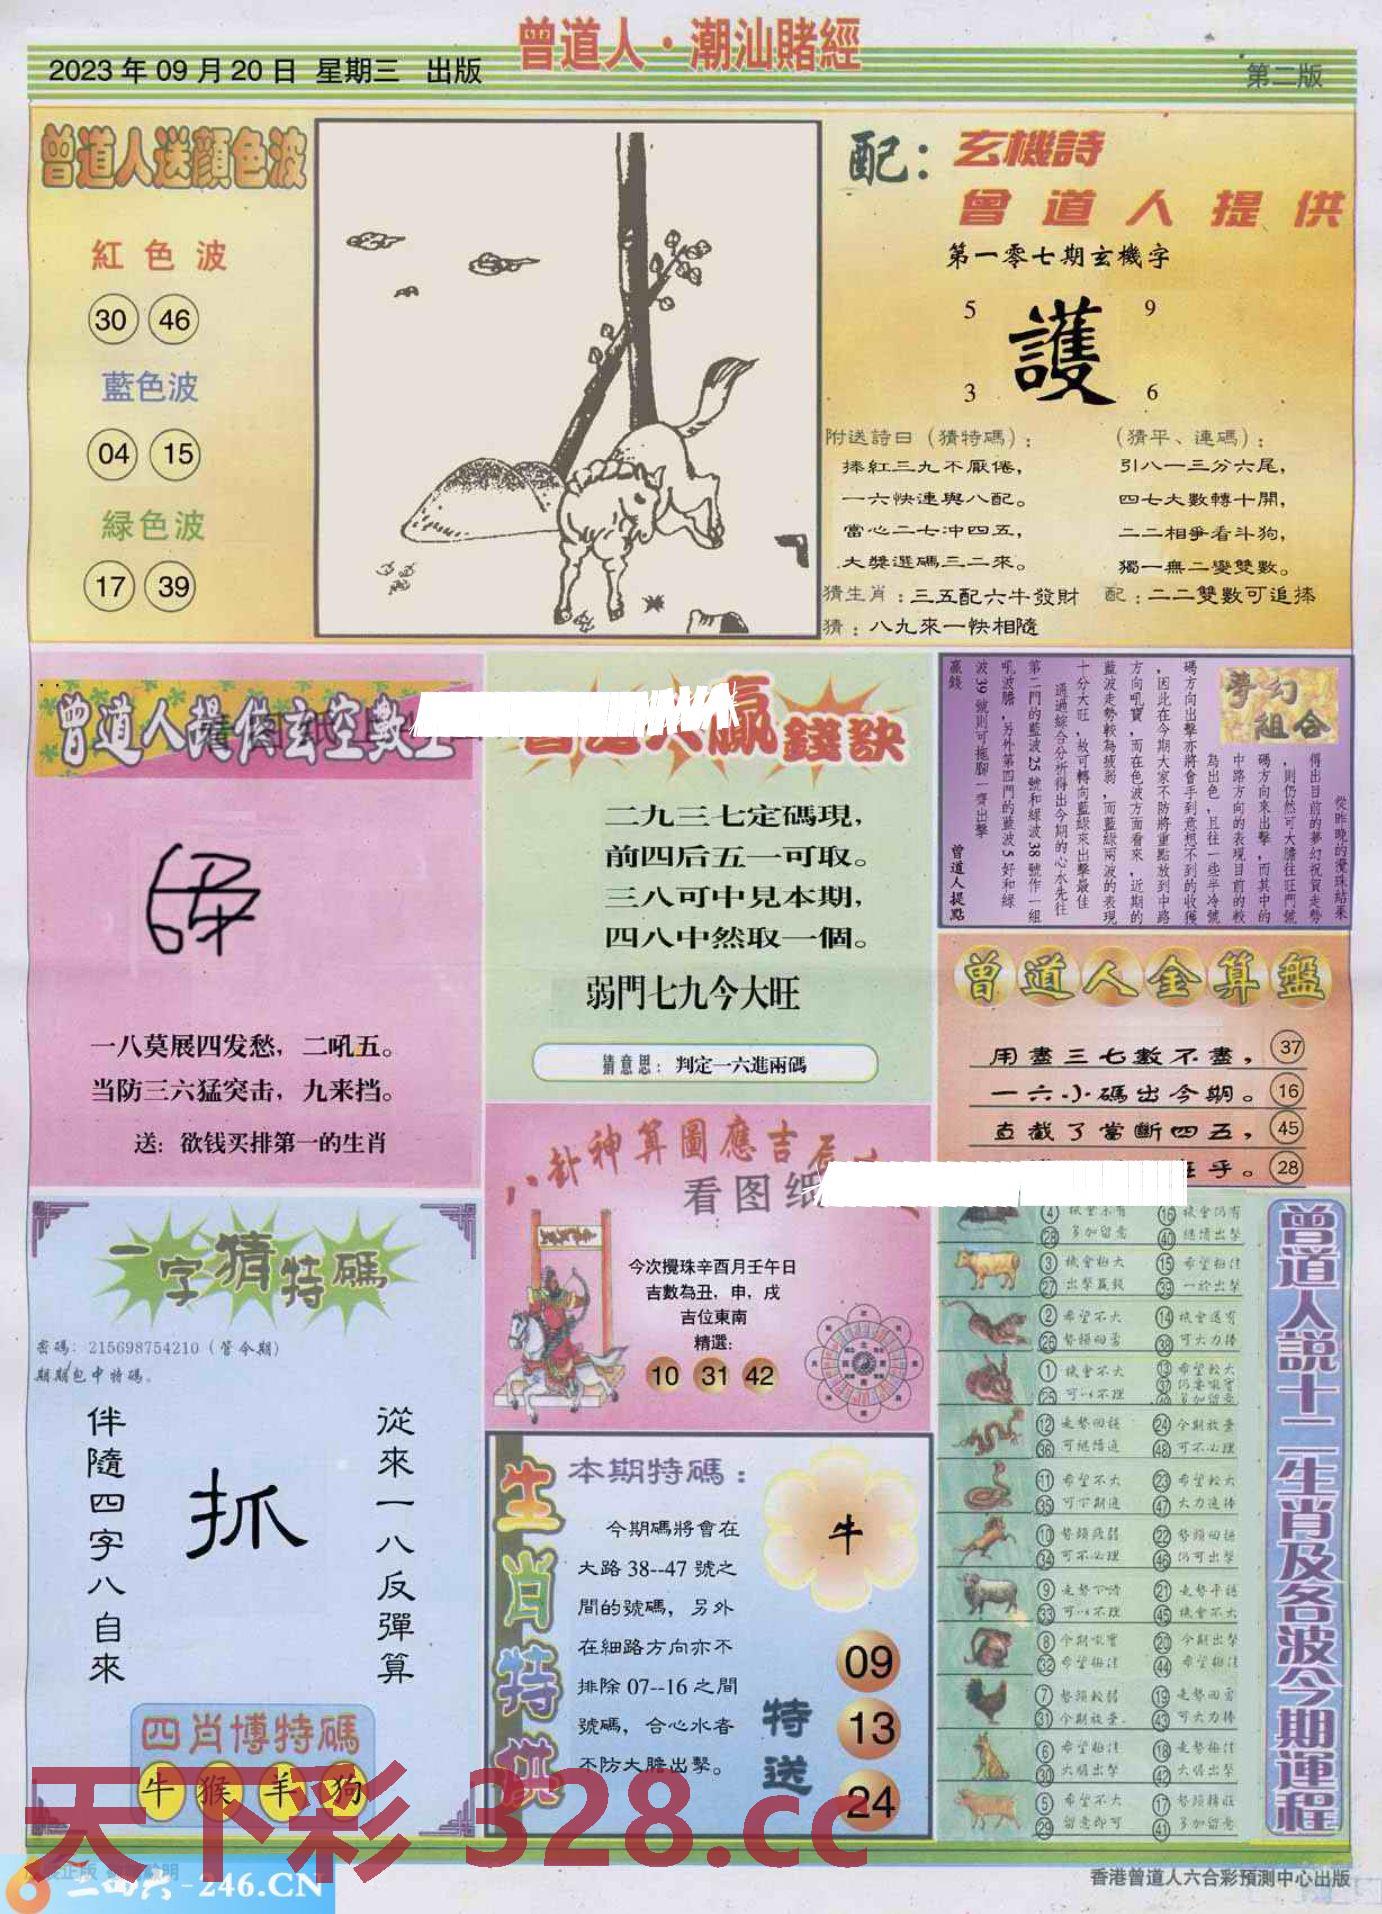 曾道人·潮汕賭經
2023年09月20日 星期三 出版
第二版
曾道人送顏色波
紅色波
30 46
藍色波
04 15
緑色波
17 39
配：玄機詩
曾道人提供
第一零七期玄機字
5 9
護
3 6
附送詩曰（猜特碼）：
捧紅三九不厭倦，
一六快連與八配。
當心二七沖四五，
大獎選碼三二來。
猜生肖：三五配六牛發財
猜：八九來一快相隨
（猜平、連碼）：
引八一三分六尾，
四七大數轉十開，
二二相爭看斗狗，
獨一無二變雙數。
配：二二雙數可追捧
曾道人提供玄空數
一八莫展四发愁，二吼五。
当防三六猛突击，九来挡。
送：欲钱买排第一的生肖
贏錢訣
二九三七定碼現，
前四后五一可取。
三八可中見本期，
四八中然取一個。
弱門七九今大旺
猜意思：判定一六進兩碼
夢幻組合
從昨晚的攪珠結果
得出目前的夢幻祝賀走勢
，則仍然可大膽往旺門號
碼方向來出擊，而其中的
中路方向的表現目前的較
為出色，且往一些半冷號
碼方向出擊亦將會手到意想不到的收獲
，因此在今期大家不防將重點放到中路
方向吼寶，而在色波方面看來，近期的
藍波走勢較為疲弱，而藍綠兩波的表現
十分大旺，故可轉向藍綠來出擊最佳
通過綜合分析得出今期的心水先往
第二門的藍波25號和綠波38號作一組
吼波膽，另外第四門的藍波5好和綠
波39號則可拖腳一齊出擊
贏錢
曾道人提點
曾道人金算盤
用盡三七數不盡，37
一六小碼出今期。16
直截了當斷四五，45
乎。28
八卦神算圖應吉
看图纸
今次攪珠辛酉月壬午日
吉數為丑，申，戌
吉位東南
精選：
10 31 42
一字猜特碼
密碼：215698754210（管今期）
期期包中特碼。
從來一八反彈算
抓
伴隨四字八自來
四肖博特碼
牛 猴 羊 狗
生肖特供
本期特碼：
今期碼將會在
大路38--47號之
間的號碼，另外
在細路方向亦不
排除07--16之間
號碼，合心水者
不防大膽出擊。
牛
特送
09
13
24
曾道人説十二生肖及各波今期運程
4 16 機會仍有
28 多加留意 40 繼續出擊
3 機會極大 15 希望極佳
27 出擊贏錢 39 一於出擊
2 希望不大 14 機會還有
26 38 可大力捧
1 機會不大 13 希望較大
25 可以不理 37
12 24 今期放棄
36 可繼續追 48 可不必理
11 希望不大 23 希望較大
35 可下期追 47 大力追捧
10 22
34 可不必理 46 仍可出擊
9 21 走勢平穩
33 可以不理 45 機會不大
8 今期吼實 20 今期出擊
32 希望極佳 44 希望極佳
7 19
31 今期放棄 43 可大力捧
6 希望極佳 18 走勢極佳
30 大膽出擊 42 大膽出擊
5 希望不大 17
29 留意即可 41 多加留意
天下彩 328.cc
二四六-246.CN
香港曾道人六合彩預測中心出版